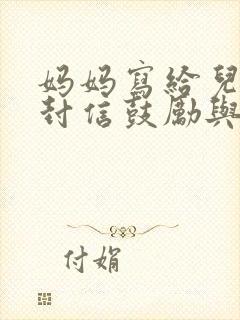 妈妈寫給兒
封信鼓勵與
付娟